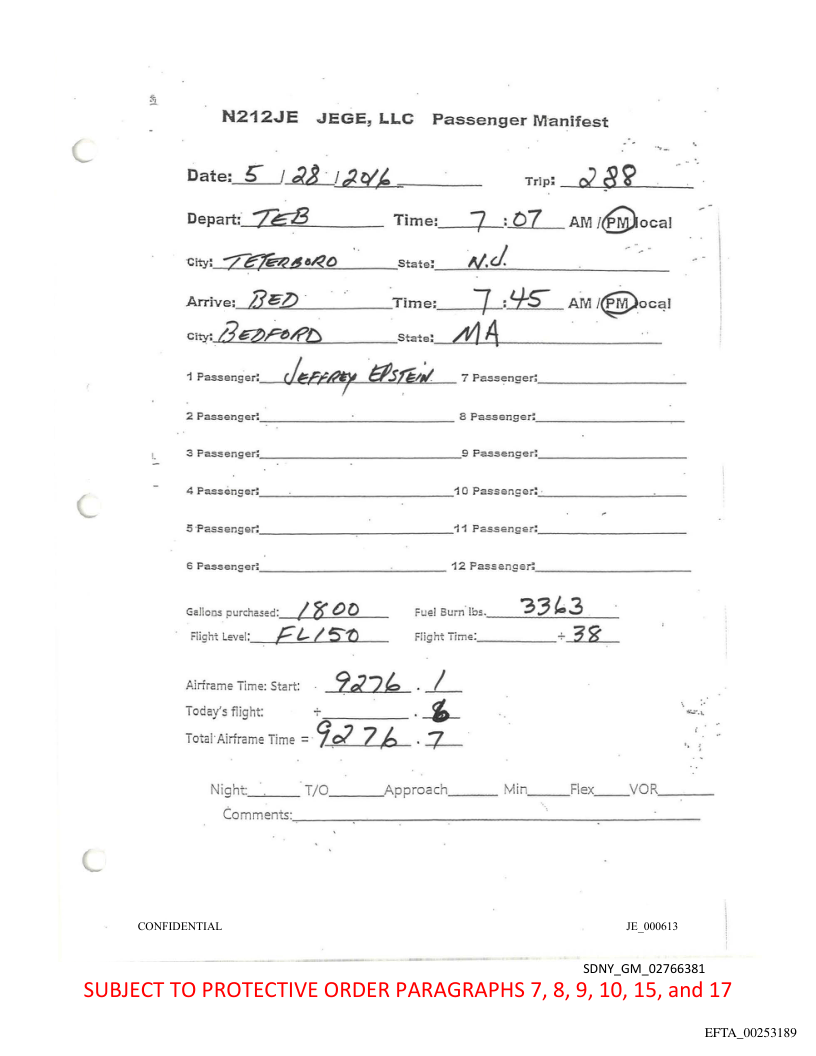 N212JE JEGE, LLC Passenger Manifest
Date: 5 / 28 / 2016 Trip: 288
Depart: TEB Time: 7 : 07 AM / PM local
City: TETERBORO State: N.J.
Arrive: BED Time: 7 : 45 AM / PM local
City: BEDFORD State: MA
1 Passenger: JEFFREY EPSTEIN 7 Passenger:
2 Passenger: 8 Passenger:
3 Passenger: 9 Passenger:
4 Passenger: 10 Passenger:
5 Passenger: 11 Passenger:
6 Passenger: 12 Passenger:
Gallons purchased: 1800 Fuel Burn lbs. 3363
Flight Level: FL150 Flight Time: + 38
Airframe Time: Start: 9276 . 1
Today's flight: + .
Total Airframe Time = 9276 . 7
Night: T/O Approach Min Flex VOR
Comments:
CONFIDENTIAL JE_000613
SDNY_GM_02766381
SUBJECT TO PROTECTIVE ORDER PARAGRAPHS 7, 8, 9, 10, 15, and 17
EFTA_00253189